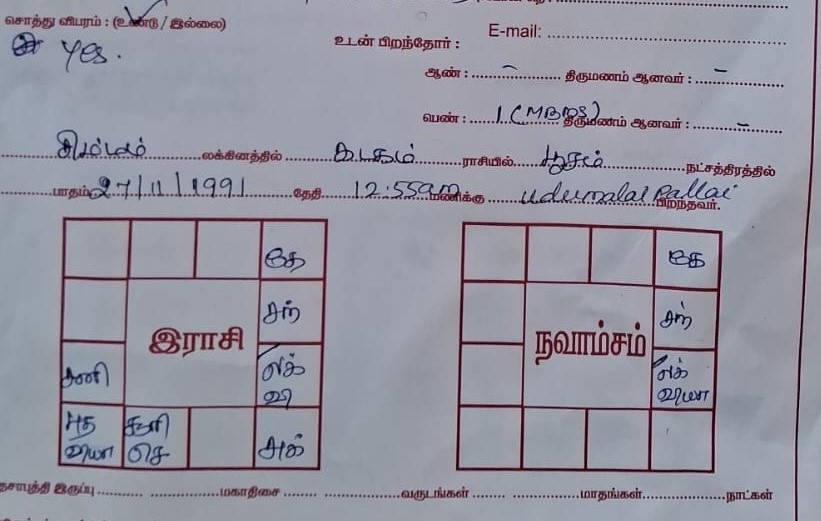 சொத்து விபரம் : (உண்டு / இல்லை)
E-mail:
yes.
உடன் பிறந்தோர் :
ஆண் : - திருமணம் ஆனவர் : -
பெண் : 1 (MBBS) திருமணம் ஆனவர் : -
சிம்மம் லக்கினத்தில் கடகம் ராசியில் பூசம் நட்சத்திரத்தில்
பாதம் 27/11/1991 தேதி 12.55am மணிக்கு udumalai Pallai பிறந்தவர்.
கே கே
சந் சந்
இராசி நவாம்சம்
சனி லக் லக்
வி வியா
சூரி
செ
தசாபுத்தி இருப்பு மகாதிசை வருடங்கள் மாதங்கள் நாட்கள்